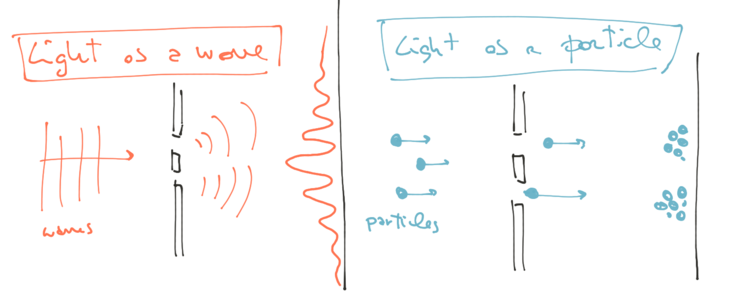 Light as a wave
waves
Light as a particle
particles